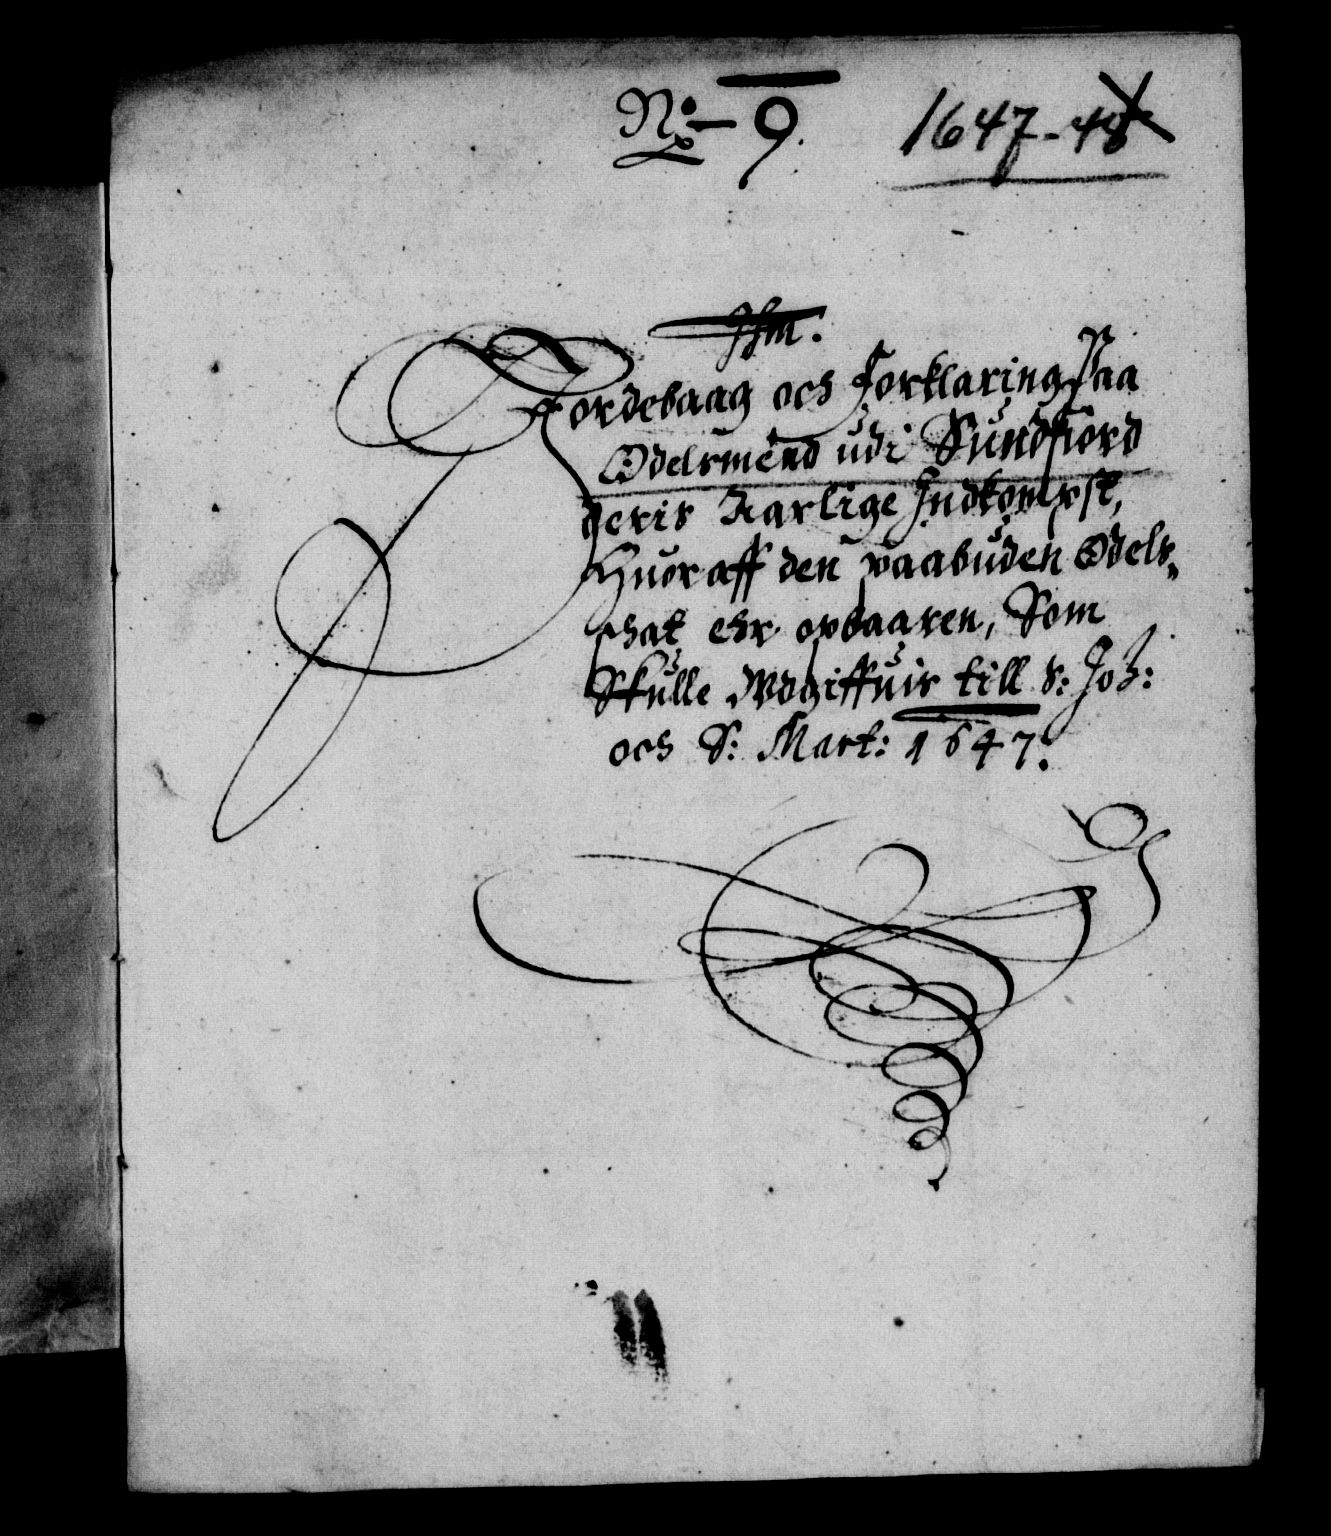 No: 9. 1647-48
Ihm:
Jordebaag och Forklaring Paa
Odelsmend udi Sundfiord
deris Aarlige Indkombst,
Huoraff den paabuden Odels
shat ehr opbaaren, Som
Skulle Udgiffuis till S: Joh:
och S: Mart: 1647.